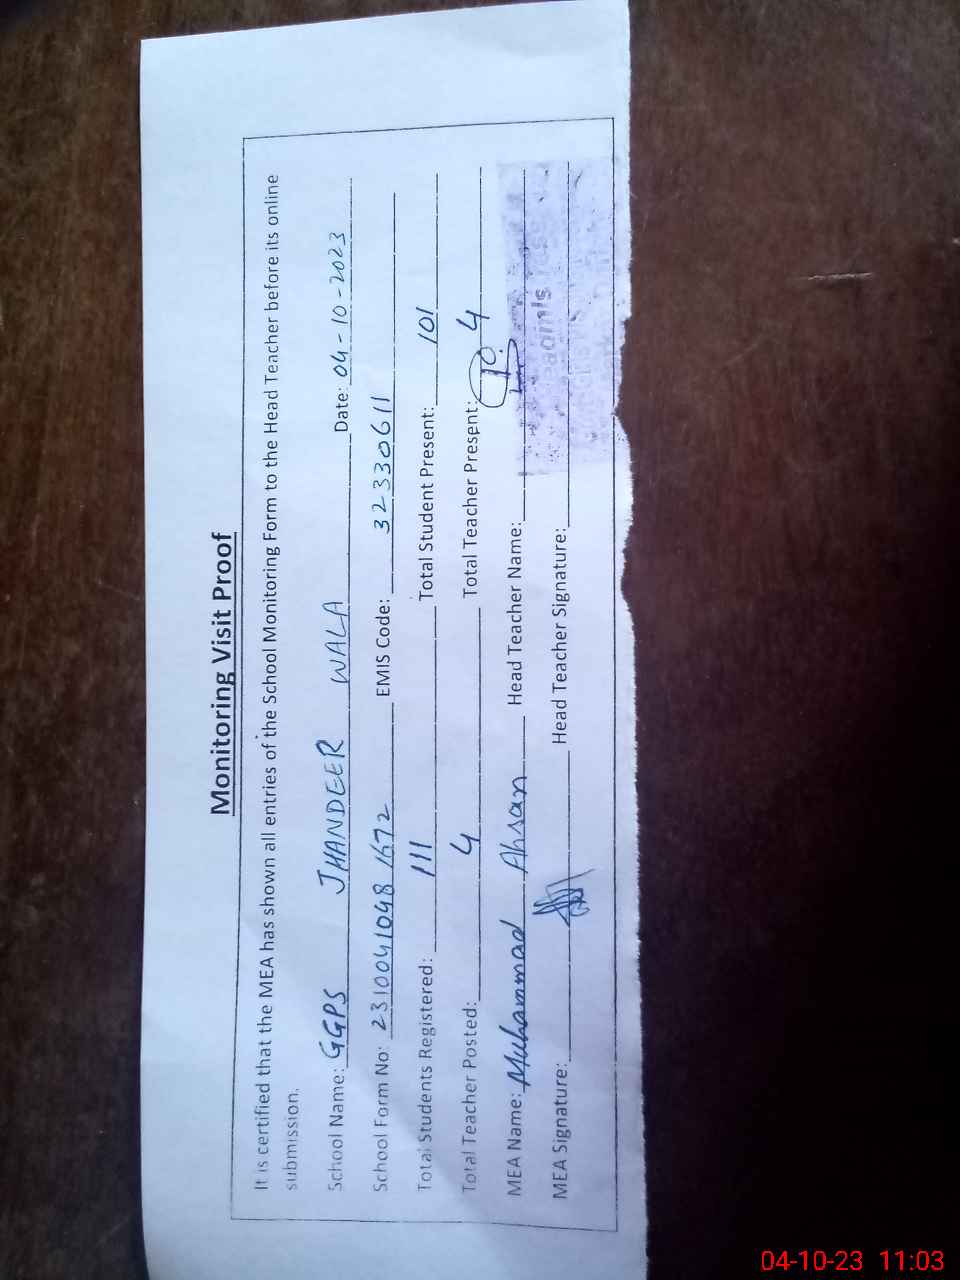 Monitoring Visit Proof
It is certified that the MEA has shown all entries of the School Monitoring Form to the Head Teacher before its online
submission.
School Name: GGPS JHANDEER WALA Date: 04-10-2023
School Form No: 2310041048 1672 EMIS Code: 32330611
Total Students Registered: 111 Total Student Present: 101
Total Teacher Posted: 4 Total Teacher Present: 4
MEA Name: Muhammad Ahsan Head Teacher Name:
MEA Signature: Head Teacher Signature:
04-10-23 11:03